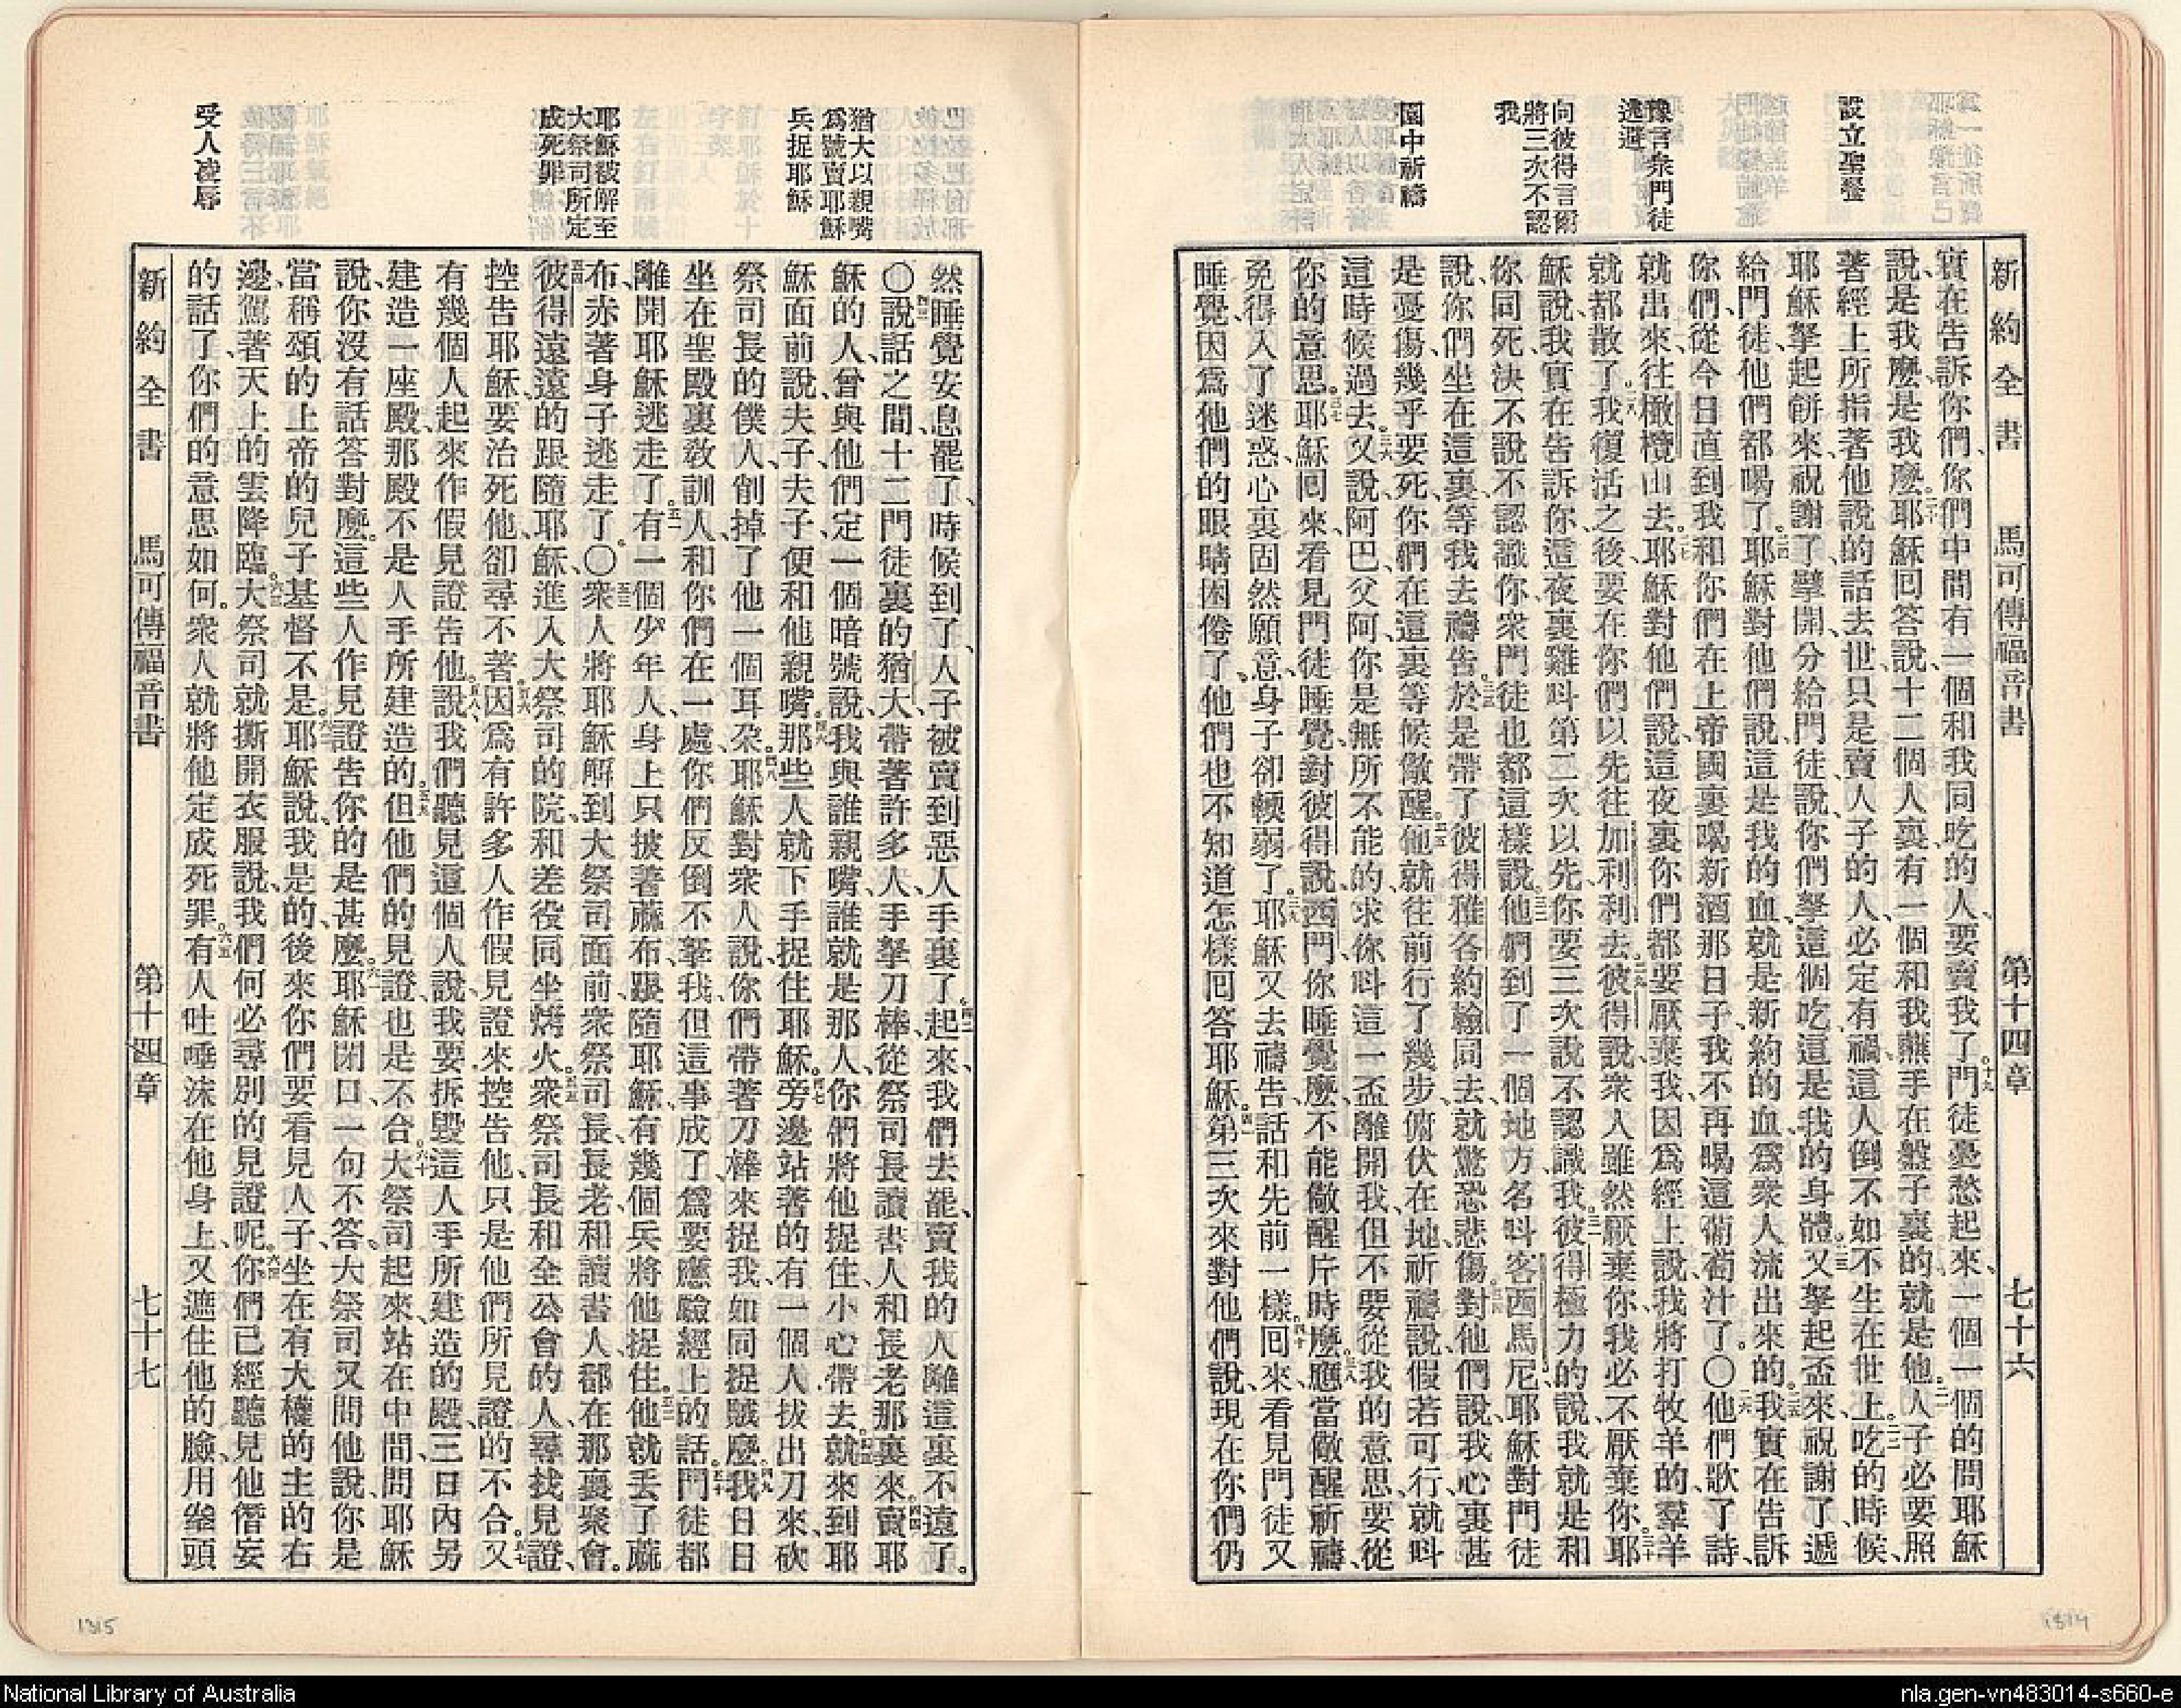 設立聖餐
豫言衆門徒
逃避
向彼得言爾
將三次不認
我
園中祈禱
新約全書 馬可傳福音書 第十四章 七十六
實在告訴你們、你們中間有一個和我同吃的人、要賣我了。門徒憂愁起來、一個一個的問耶穌
說、是我麼、是我麼。耶穌回答說、十二個人裏有一個和我蘸手在盤子裏的、就是他。人子必要照
著經上所指著他說的話去世、只是賣人子的人、必定有禍、這人倒不如不生在世上。吃的時候、
耶穌拏起餅來、祝謝了、擘開、分給門徒、說、你們拏這個吃、這是我的身體。又拏起盃來、祝謝了、遞
給門徒、他們都喝了。耶穌對他們說、這是我的血、就是新約的血、爲衆人流出來的。我實在告訴
你們、從今日直到我和你們在上帝國裏喝新酒那日子、我不再喝這葡萄汁了。〇他們歌了詩、
就出來、往橄欖山去。耶穌對他們說、這夜裏你們都要厭棄我、因爲經上說、我將打牧羊的、羣羊
就都散了。我復活之後、要在你們以先往加利利去。彼得說、衆人雖然厭棄你、我必不厭棄你。耶
穌說、我實在告訴你、這夜裏雞呌第二次以先、你要三次說不認識我。彼得極力的說、我就是和
你同死、決不說不認識你、衆門徒也都這樣說。他們到了一個地方名呌客西馬尼、耶穌對門徒
說、你們坐在這裏、等我去禱告。於是帶了彼得雅各約翰同去、就驚恐悲傷。對他們說、我心裏甚
是憂傷、幾乎要死、你們在這裏等候儆醒。他就往前行了幾步、俯伏在地、祈禱說、假若可行、就呌
這時候過去。又說、阿巴、父阿、你是無所不能的、求你呌這一盃離開我、但不要從我的意思、要從
你的意思。耶穌回來、看見門徒睡覺、對彼得說、西門、你睡覺麼、不能儆醒片時麼。應當儆醒祈禱、
免得入了迷惑、心裏固然願意、身子卻輭弱了。耶穌又去禱告、話和先前一樣。回來看見門徒又
睡覺、因爲他們的眼睛困倦了、他們也不知道怎樣回答耶穌。第三次來對他們說、現在你們仍
猶大以親嘴
爲號賣耶穌
兵捉耶穌
耶穌被解至
大祭司所定
成死罪
受人凌辱
然睡覺安息罷了、時候到了、人子被賣到惡人手裏了。起來、我們去罷、賣我的人離這裏不遠了。
〇說話之間、十二門徒裏的猶大、帶著許多人、手拏刀棒、從祭司長讀書人和長老那裏來。賣耶
穌的人、曾與他們定一個暗號說、我與誰親嘴、誰就是那人、你們將他捉住、小心帶去。就來到耶
穌面前、說、夫子、夫子、便和他親嘴。那些人就下手捉住耶穌。旁邊站著的有一個人拔出刀來、砍
祭司長的僕人、削掉了他一個耳朶。耶穌對衆人說、你們帶著刀棒來捉我、如同捉賊麼。我日日
坐在聖殿裏敎訓人、和你們在一處、你們反倒不拏我、但這事成了、爲要應驗經上的話。門徒都
離開耶穌逃走了。有一個少年人、身上只披著蔴布、跟隨耶穌、有幾個兵將他捉住。他就丟了蔴
布、赤著身子逃走了。〇衆人將耶穌解到大祭司面前、衆祭司長長老和讀書人、都在那裏聚會。
彼得遠遠的跟隨耶穌、進入大祭司的院、和差役同坐烤火。衆祭司長和全公會的人、尋找見證、
控告耶穌、要治死他、卻尋不著。因爲有許多人作假見證來控告他、只是他們所見證的不合。又
有幾個人起來、作假見證告他。說、我們聽見這個人說、我要拆毀這人手所建造的殿、三日內另
建造一座殿、那殿不是人手所建造的。但他們的見證、也是不合。大祭司起來、站在中間、問耶穌
說、你沒有話答對麼。這些人作見證告你的是甚麼。耶穌閉口、一句不答、大祭司又問他說、你是
當稱頌的上帝的兒子基督不是。耶穌說、我是的、後來你們要看見人子、坐在有大權的主的右
邊、駕著天上的雲降臨。大祭司就撕開衣服說、我們何必尋別的見證呢。你們已經聽見他僭妄
的話了、你們的意思如何。衆人就將他定成死罪。有人吐唾沫在他身上、又遮住他的臉、用拳頭
新約全書 馬可傳福音書 第十四章 七十七
1315
1314
National Library of Australia
nla.gen-vn483014-s660-e